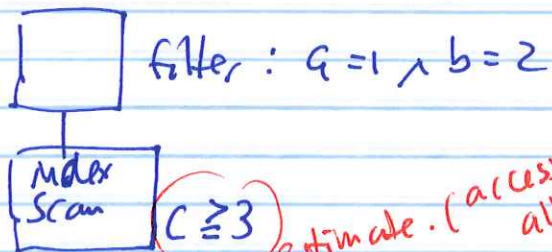 filter : a = 1 ∧ b = 2
Index
Scan
C ≥ 3
estimate. (access